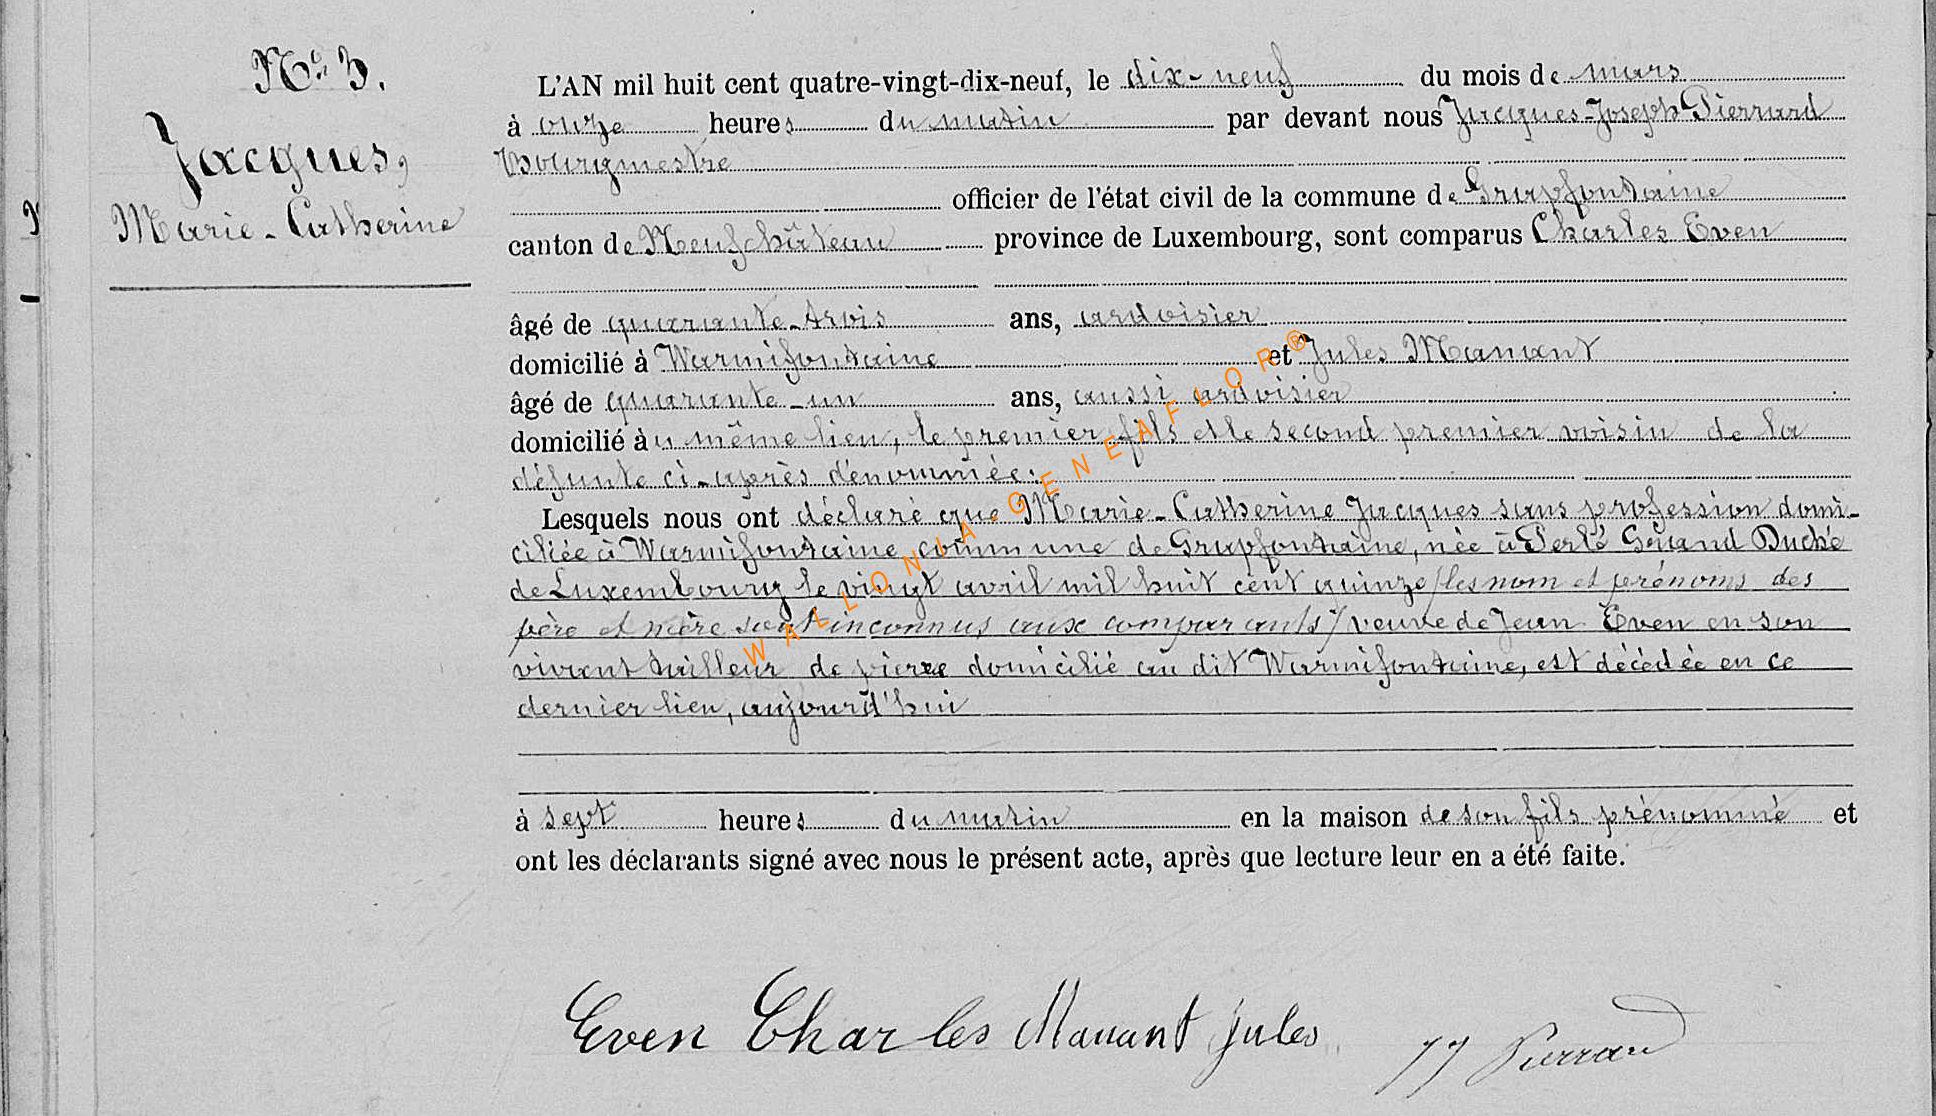 N° 3.
Jacques,
Marie-Catherine
L'AN mil huit cent quatre-vingt-dix-neuf, le dix-neuf du mois de mars
à onze heures du matin par devant nous Jacques-Joseph Pierrard
Bourgmestre
officier de l'état civil de la commune de Grapfontaine
canton de Neufchâteau province de Luxembourg, sont comparus Charles Even
âgé de quarante-trois ans, ardoisier
domicilié à Warmifontaine et Jules Manant
âgé de quarante-un ans, aussi ardoisier
domicilié au même lieu, le premier fils et le second premier voisin de la
défunte ci-après dénommée:
Lesquels nous ont déclaré que Marie-Catherine Jacques sans profession domi-
ciliée à Warmifontaine commune de Grapfontaine, née à Perlé Grand Duché
de Luxembourg le vingt avril mil huit cent quinze (les nom et prénoms des
père et mère sont inconnus aux comparants) veuve de Jean Even en son
vivant tailleur de pierre domicilié au dit Warmifontaine, est décédée en ce
dernier lieu, aujourd'hui
à sept heures du matin en la maison de son fils prénommé et
ont les déclarants signé avec nous le présent acte, après que lecture leur en a été faite.
Even Charles Manant Jules JJ Pierrard
WALLONIA-GENEAFLOR®